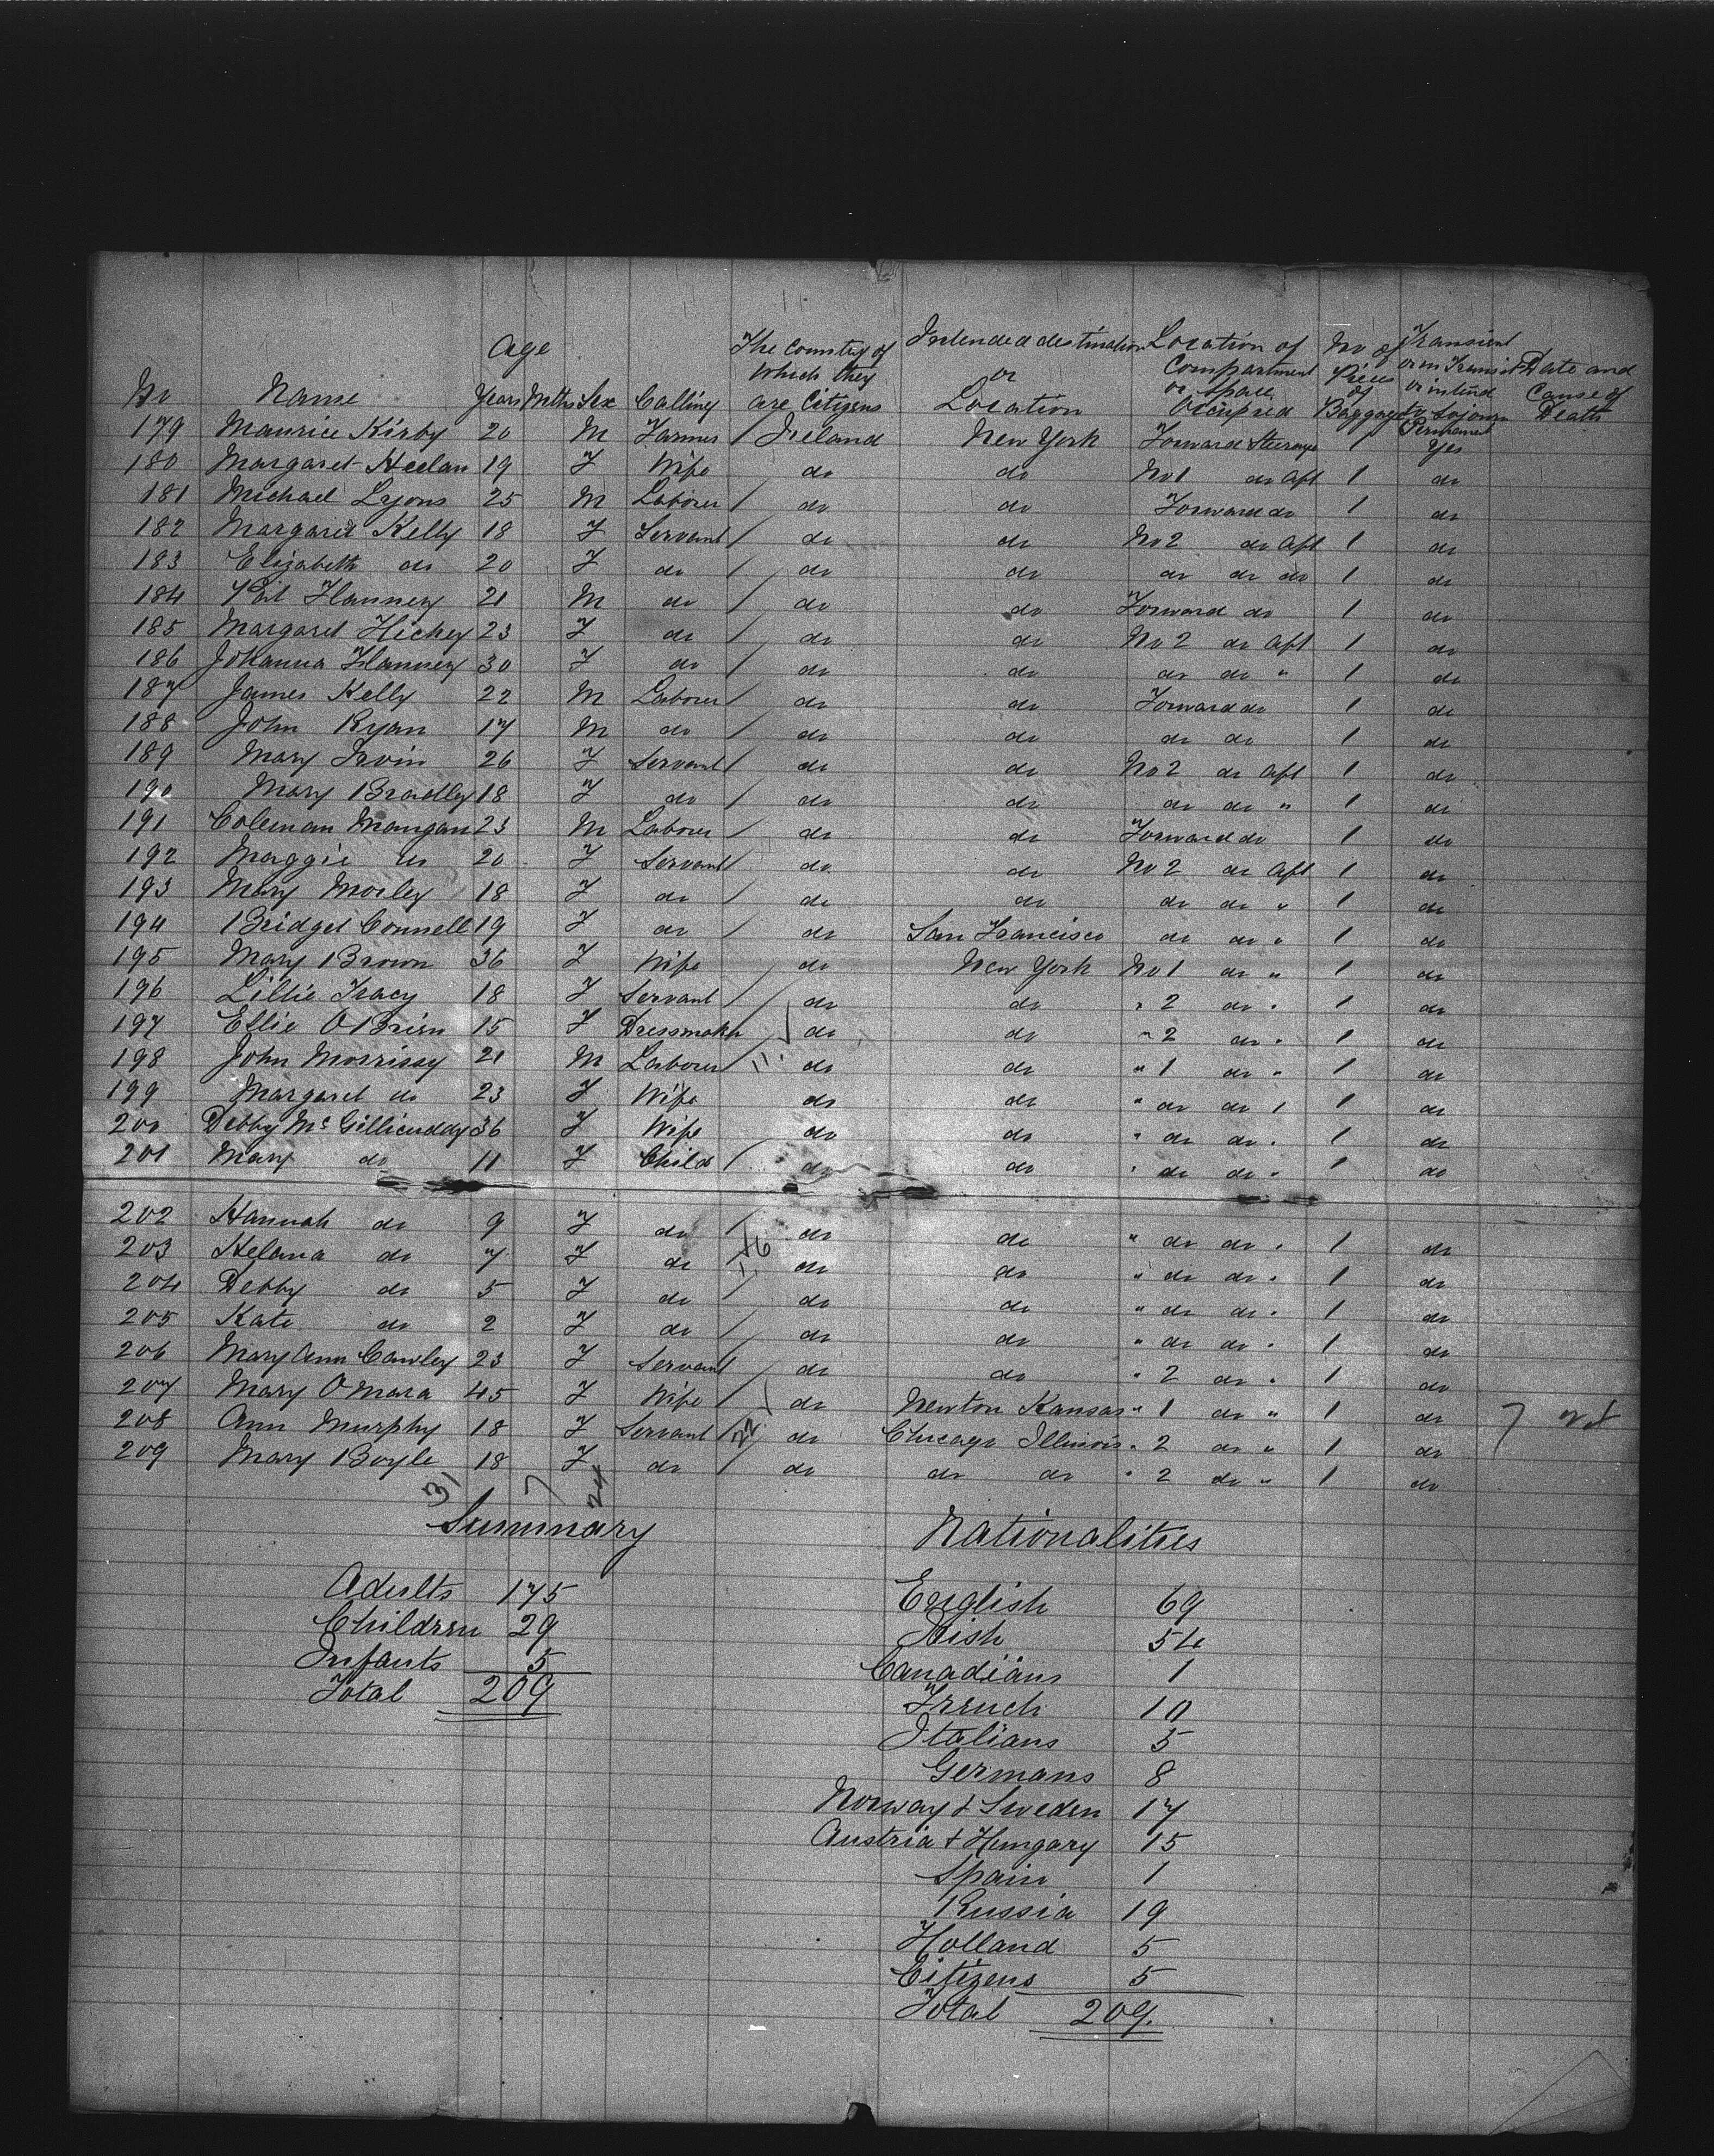 Age
No Name Years Mths Sex Calling The Country of Which they are Citizens Intended destination or Location Location of Compartment or Space Occupied No of Pieces of Baggage Transient or in Transit or intend to sojourn Permanent Date and Cause of Death
179 Maurice Kirby 20 M Farmer / Ireland New York Forward Steerage 1 Yes
180 Margaret Heelan 19 F Wife do do No 1 do Aft 1 do
181 Michael Lyons 25 M Laborer / do do Forward do 1 do
182 Margaret Kelly 18 F Servant / do do No 2 do Aft 1 do
183 Elizabeth do 20 F do / do do do do do 1 do
184 Pat Flannery 21 M do / do do Forward do 1 do
185 Margaret Hickey 23 F do / do do No 2 do Aft 1 do
186 Johanna Flannery 30 F do / do do do do " 1 do
187 James Kelly 22 M Laborer / do do Forward do 1 do
188 John Ryan 17 M do / do do do do 1 do
189 Mary Irvin 26 F Servant / do do No 2 do Aft 1 do
190 Mary Bradley 18 F do / do do do do " 1 do
191 Coleman Mangan 23 M Laborer / do do Forward do 1 do
192 Maggie do 20 F Servant / do do No 2 do Aft 1 do
193 Mary Morley 18 F do / do do do do " 1 do
194 Bridget Connell 19 F do / do San Francisco do do " 1 do
195 Mary Brown 36 F Wife do New York No 1 do " 1 do
196 Lillie Tracy 18 F Servant / do do " 2 do " 1 do
197 Ellie O Brien 15 F Dressmaker / do do " 2 do " 1 do
198 John Morrissy 21 M Laborer / do do " 1 do " 1 do
199 Margaret do 23 F Wife do do " do do " 1 do
200 Debby Mc Gillicuddy 36 F Wife do do " do do " 1 do
201 Mary do 11 F Child / do do " do do " 1 do
202 Hannah do 9 F do / do do " do do " 1 do
203 Helana do 7 F do / do do " do do " 1 do
204 Debby do 5 F do / do do " do do " 1 do
205 Kate do 2 F do / do do " do do " 1 do
206 Mary Ann Cawley 23 F Servant / do do " 2 do " 1 do
207 Mary O Mara 45 F Wife / do Newton Kansas " 1 do " 1 do
208 Ann Murphy 18 F Servant / do Chicago Illinois " 2 do " 1 do
209 Mary Boyle 18 F do / do do do " 2 do " 1 do
31 7 24
Summary
Adults 175
Children 29
Infants 5
Total 209
Nationalities
English 69
Irish 54
Canadians 1
French 10
Italians 5
Germans 8
Norway & Sweden 17
Austria & Hungary 15
Spain 1
Russia 19
Holland 5
Citizens 5
Total 209.